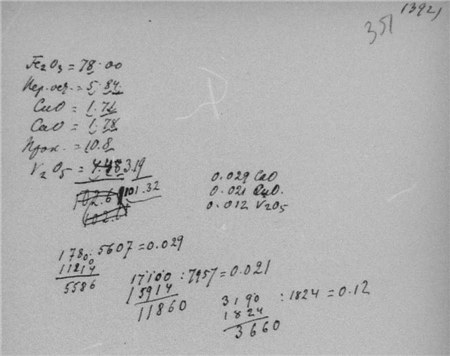 351 (392)
Fe2O3 = 78.00
Нер. ост. = 5.84
CuO = 1.71
CaO = 1.78
Прок. = 10.8
V2O5 = 3.19
101.32
0.029 CaO
0.021 CuO.
0.012 V2O5
1780 : 5607 = 0.029
11214
5586
17100 : 7957 = 0.021
15914
11860
3190 : 1824 = 0.12
1824
3660